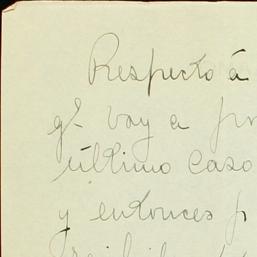 Respecto á
q.e voy a
último caso
y entonces